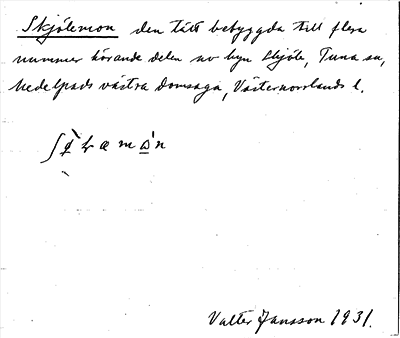 Skjölemon den tätt bebyggda till flera
nummer hörande delen av byn Skjöle, Tuna sn,
Medelpads västra Domsaga, Västernorrlands l.
Valter Jansson 1931.